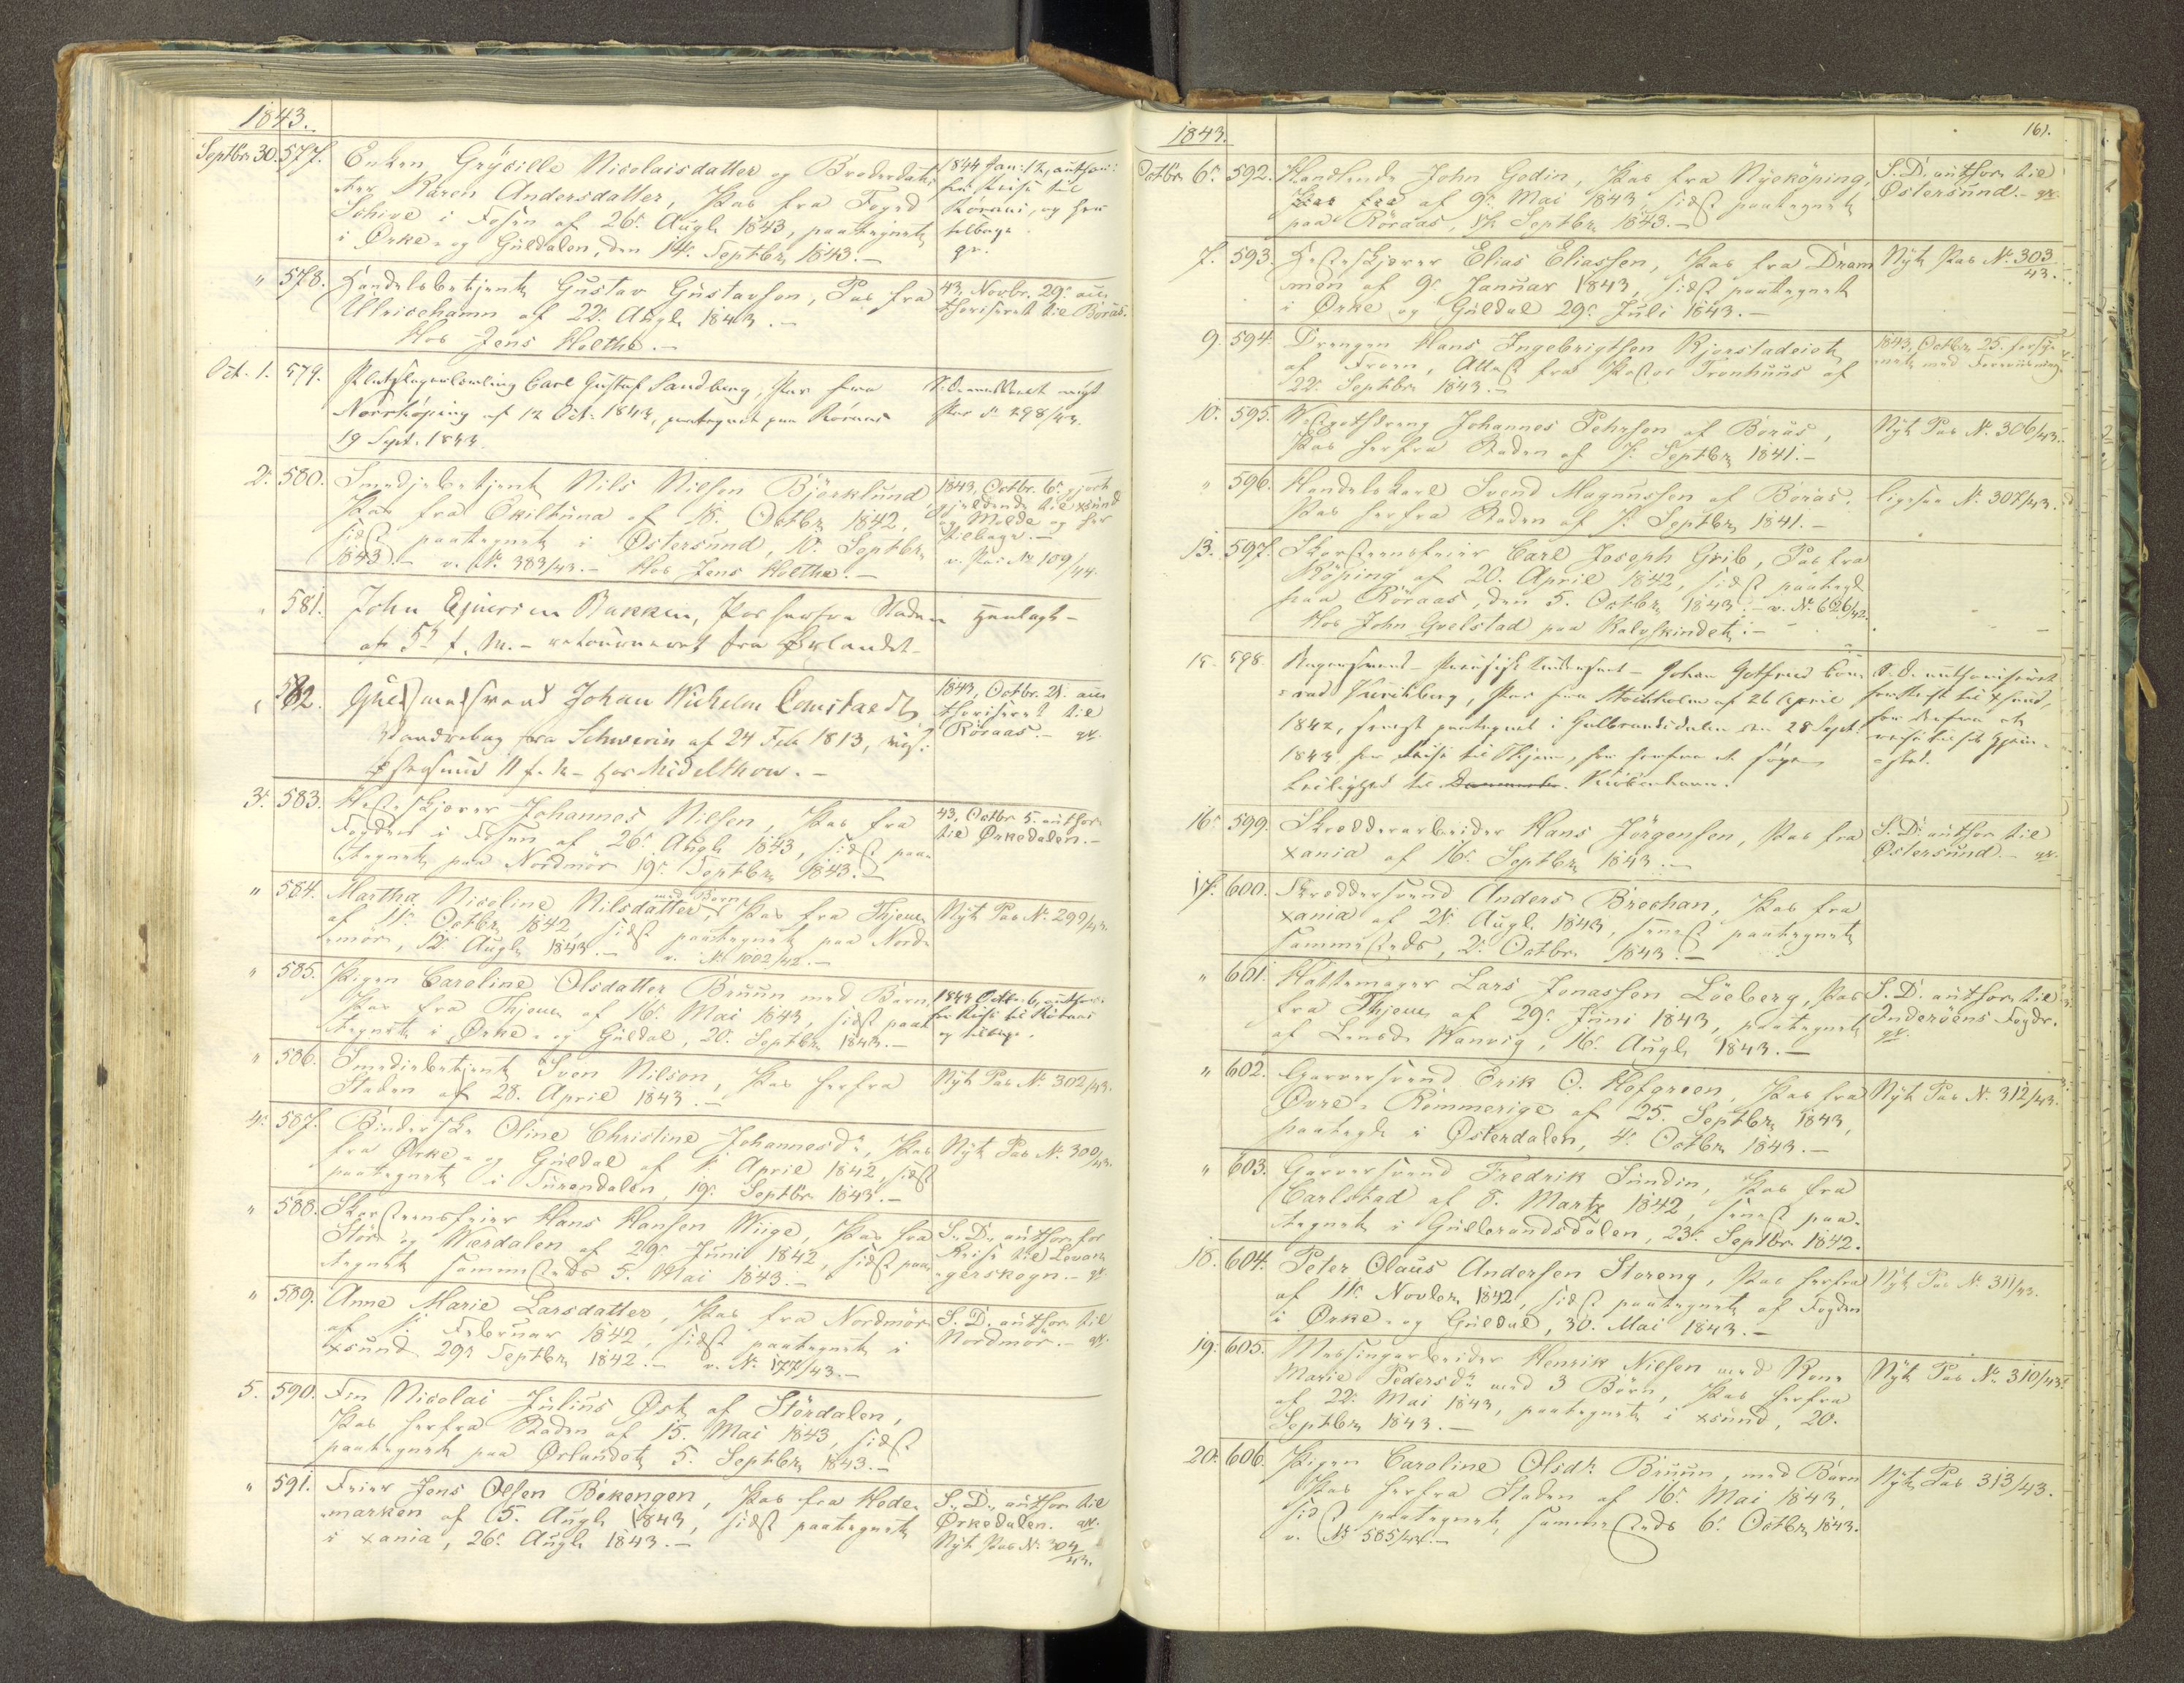 1843.
Septbr 30. 577. Enken Grysille Nicolaisdatter og Broderdat-
ter Karen Andersdatter, Pas fra Foged
Schive i Fosen af 26. Augh 1843, paategnet
i Ørke- og Guldalen, den 14. Septbr 1843.-
1844 Jan: 12, authori:
for Reise til
Röraas, og her
tilbage.
" 578. Handelsbetjent Gustav Gustavson, Pas fra
Ulricehamn af 22. Augh 1843.-
Hos Jens Holthe.-
43, Novbr. 29. au-
thoriseret til Borås.
Oct. 1. 579. Carl Gustaf Sandberg, Pas fra
Norrköping af 12 Oct. 1842, paategnet paa Röraas
19 Sept. 1843.
S.D. meddeelt nyt
Pas N 298/43.
2. 580. Smedjebetjent Nils Nilsen Björklund
Pas fra Ekiltuna af 18. Octbr 1842,
sidst paategnet i Østersund, 10. Septbr
1843.- v. N. 383/43.- Hos Jens Holthe.-
1843, Octbr. 6. gjort
gjeldende til xsund
og Molde og her
tilbage.-
v. Pas N 109/44.
" 581. John Ejnersen Bakken, Pas herfra Staden
af 5 f. M. - retourneret fra Ørlandet-
henlagt-
" 582. Guldsmedsvend Johan Wilhelm Comstaedt,
Vandrebog fra Schwerin af 24 Feb 1813,
11 f. M. - hos Midelthon.-
1843, Octbr. 21. au-
thoriseret til
Röraas.-
3. 583. Hesteskjærer Johannes Nilsen, Pas fra
Fogden i Fosen af 26. Augh 1843, sidst paa-
tegnet paa Nordmör 19. Septbr 1843.-
43, Octbr 5. author
til Ørkedalen.-
" 584. Martha Nicoline Nilsdatter med Børn, Pas fra Thjem
af 11. Octbr 1842, sidst paategnet paa Nord-
mör, 12. Augh 1843.- v. N. 1002/42.-
Nyt Pas N. 299/43.
" 585. Pigen Caroline Olsdatter Bruun med Barn,
Pas fra Thjem af 16. Mai 1843, sidst paa-
tegnet i Ørke- og Guldal, 20. Septbr 1843.-
1843 Octbr 6, author:
for Reise til Röraas
og tilbage.
" 586. Smediebetjent Sven Nilson, Pas herfra
Staden af 28. April 1843.-
Nyt Pas N. 302/43.
4. 587. Binderske Oline Christine Johannesdr, Pas
fra Ørke- og Guldal af 1. April 1842, sidst
paategnet i Surendalen, 19. Septbr 1843.-
Nyt Pas N. 300/43.
" 588. Skorsteensfeier Hans Hansen Wiige, Pas fra
Stör- og Wærdalen af 29. Juni 1842, sidst paa-
tegnet sammesteds 5. Mai 1843.-
S. D. author for
Reise til Levan-
gerskogn.-
" 589. Anne Marie Larsdatter, Pas fra Nordmör
af 1. Februar 1842, sidst paategnet i
xsund 29. Septbr 1842.- v. N. 177/43.-
S. D. author til
Nordmör.-
5. 590. Fin Nicolai Julius Øst af Stördalen,
Pas herfra Staden af 15. Mai 1843, sidst
paategnet paa Ørlandet, 5. Septbr 1843.-
" 591. Feier Jens Olsen Bekengen, Pas fra Hede-
marken af 15. Augh 1843, sidst paategnet
i xania, 26. Augh 1843.-
S. D. author til
Ørkedalen.
Nyt Pas N. 304/43.
1843. 161.
Octbr 6. 592. Handlende John Godin, Pas fra Nyeköping,
af 9. Mai 1843, sidst paategnet
paa Röraas, Septbr 1843.-
S. D. author til
Østersund.-
7. 593. Hesteskjærer Elias Eliassen, Pas fra Dram-
men af 9. Januar 1843, sidst paategnet
i Ørke og Guldal 29. Juli 1843.-
Nyt Pas N. 303/43.
9. 594. Drengen Hans Ingebrigtsen Kjorstadeiet
af Froen, Attest fra Pastor Tronhuus af
22. Septbr 1843.-
1843, Octbr 25. forsy-
net med Foreviisning.
10. 595. Johannes Pehrson af Borås,
Pas herfra Staden af 7. Septbr 1841.-
Nyt Pas N. 306/43.
" 596. Handelskarl Svend Magnussen af Borås.
Pas herfra Staden af 7. Septbr 1841.-
ligesaa N. 307/43.
13. 597. Skorsteensfeier Carl Joseph Grib, Pas fra
Köping af 20. April 1842, sidst paategt
paa Röraas, den 5. Octbr 1843.- v. N. 626/42.
Hos John Gvelstad paa Kalvskindet.-
15. 598. Bagersvend - - Johan Gotfried Con-
rad Kirchberg, Pas fra Stockholm af 26 April
1842, senest paategnet i Gulbrandsdalen den 28 Sept.
1843 for Reise til Thjem, for herfra at søge
Leilighed til Kiöbenhavn.
S. D. authoriseret
til xsund,
for derfra at
reise til sit Hjem-
sted.
16. 599. Skrædderarbeider Hans Jörgensen, Pas fra
xania af 16. Septbr 1843.-
S. D. author til
Østersund.-
17. 600. Skræddersvend Anders Brechan, Pas fra
xania af 21. Augh 1843, senest paategnet
sammesteds, 2. Octbr 1843.-
" 601. Hattemager Lars Jonassen Löeberg, Pas
fra Thjem af 29. Juni 1843, paategnet
af Lensd. Wanvig, 16. Augh 1843.-
S. D. author til
Inderöens Fogdr.
" 602. Garversvend Erik O. Hofgreen, Pas fra
Øvre- Rommerige af 25. Septbr 1843,
paategt i Østerdalen, 4. Octbr 1843.-
Nyt Pas N. 312/43.
" 603. Garversvend Fredrik Sundin, Pas fra
Carlstad af 8. Martz 1842, senest paa-
tegnet i Gulbrandsdalen, 23. Septbr 1842.
18. 604. Peter Olaus Andersen Storeng, Pas herfra
af 11. Novbr 1842, sidst paategnet af Fogden
i Ørke- og Guldal, 30. Mai 1843.-
Nyt Pas N. 311/43.
19. 605. Messingarbeider Henrik Nielsen med Kone
Marie Pedersdr med 3 Börn, Pas herfra
af 22. Mai 1843, paategnet i xsund, 20.
Septbr 1843.-
Nyt Pas N. 310/43.
20. 606. Pigen Caroline Olsdr. Bruun, med Barn
Pas herfra Staden af 16. Mai 1843,
sidst paategnet, sammesteds 6. Octbr 1843.
v. N 585/43.-
Nyt Pas 313/43.